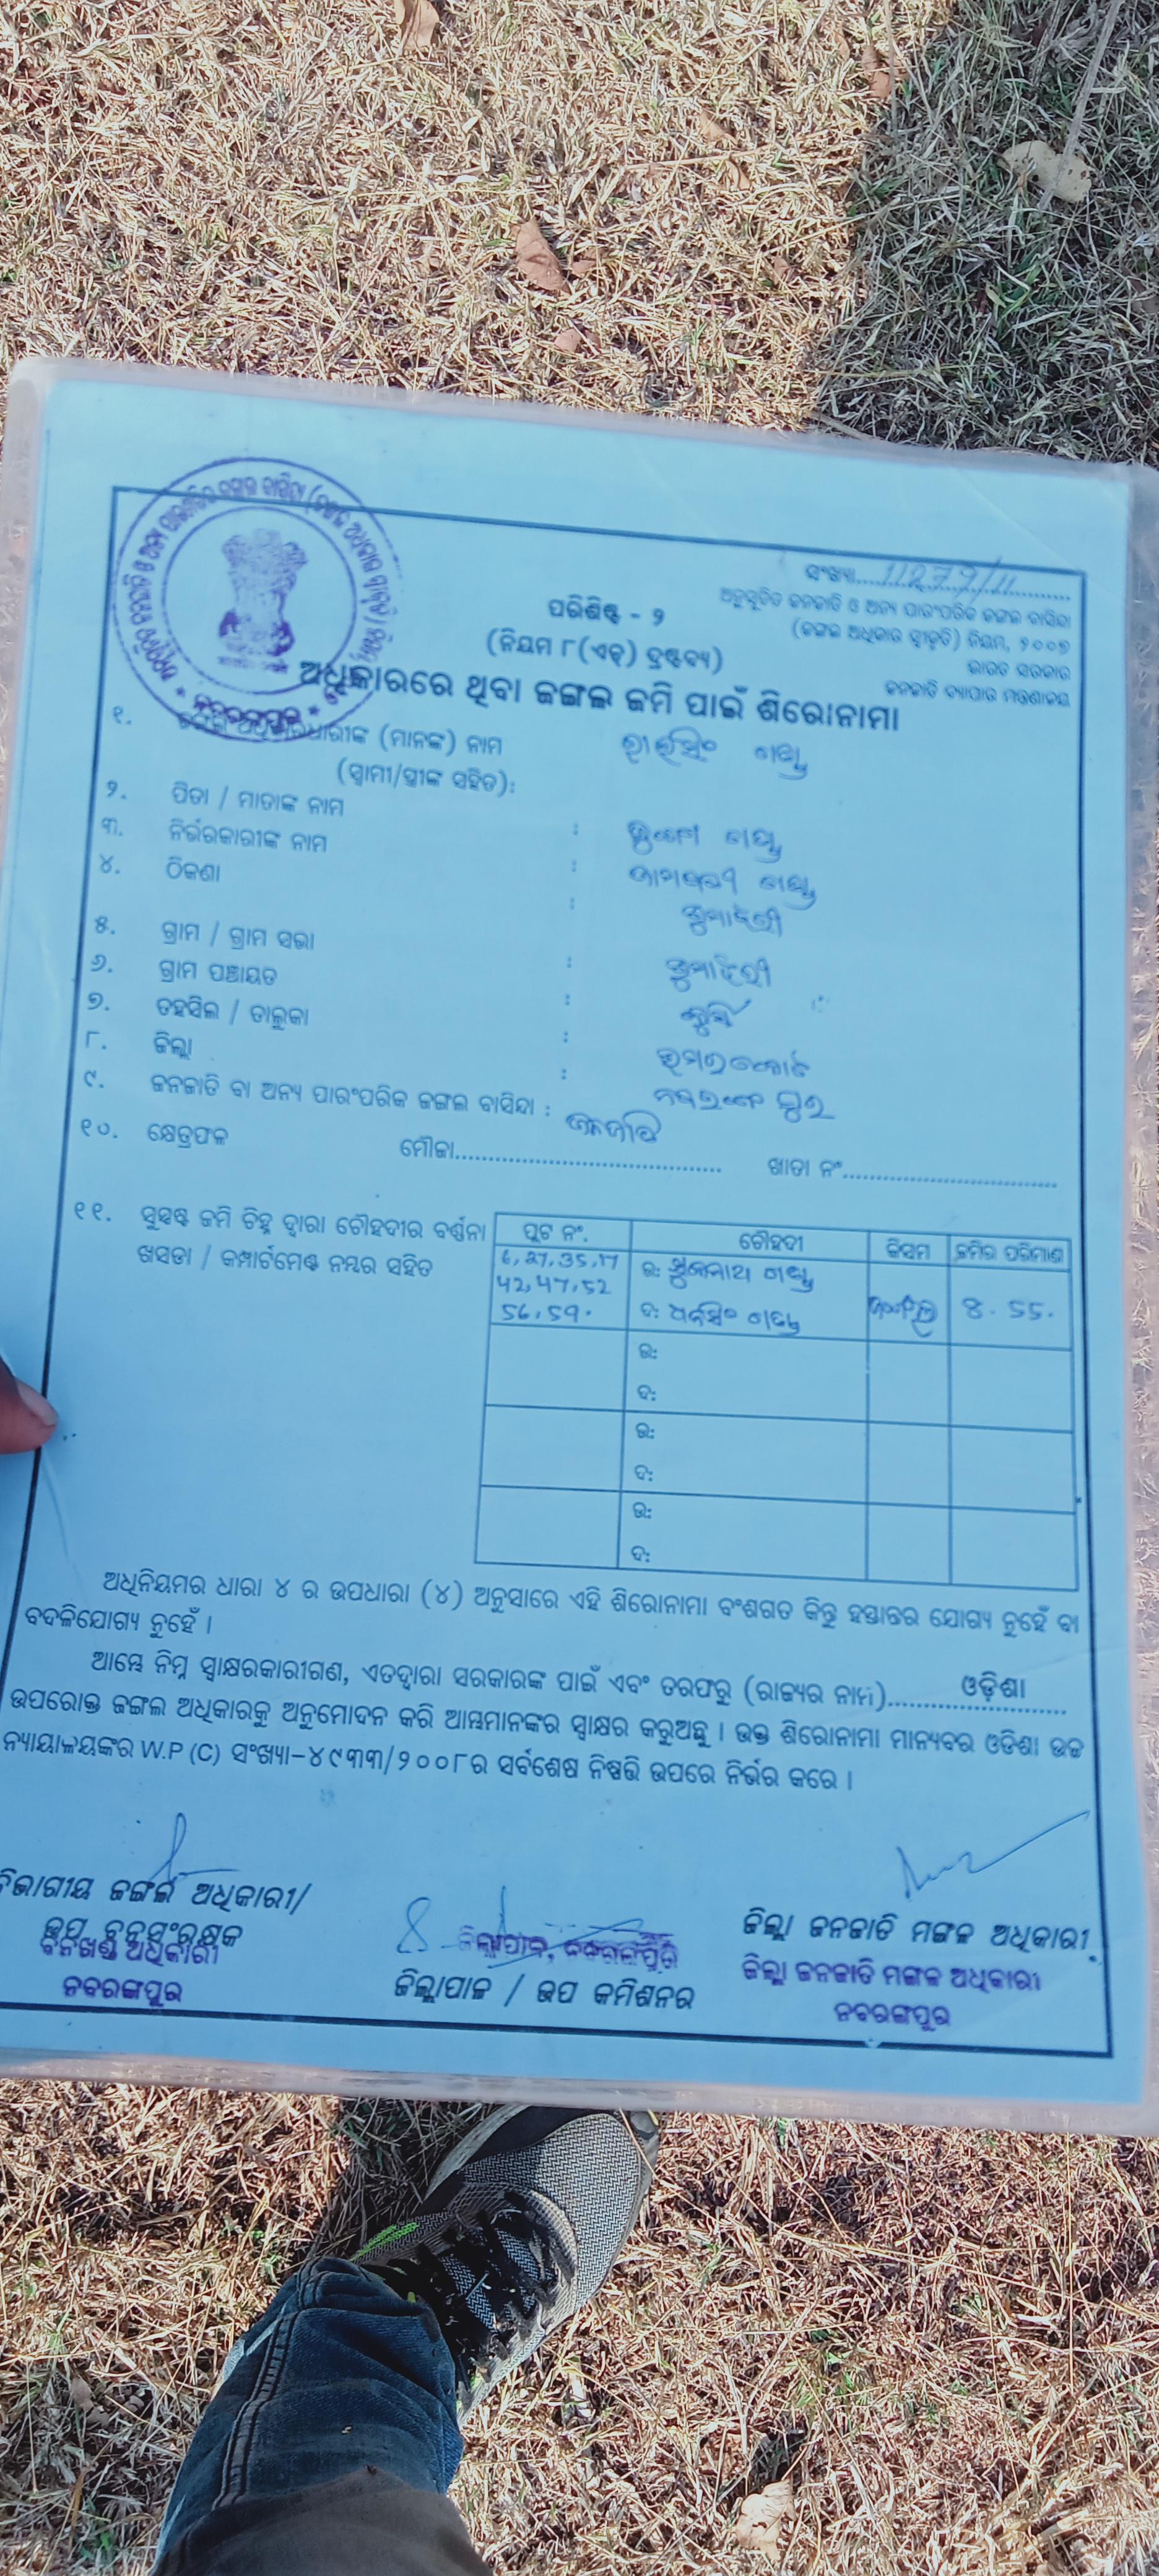 ସଂଖ୍ୟା......11279/11......
ଅନୁସୂଚିତ ଜନଜାତି ଓ ଅନ୍ୟ ପାରଂପରିକ ଜଙ୍ଗଲ ବାସିନ୍ଦା
(ଜଙ୍ଗଲ ଅଧିକାର ସ୍ୱୀକୃତି) ନିୟମ, ୨୦୦୭
ଭାରତ ସରକାର
ଜନଜାତି ବ୍ୟାପାର ମନ୍ତ୍ରଣାଳୟ
ପରିଶିଷ୍ଟ - ୨
(ନିୟମ ୮(ଏଚ୍) ଦ୍ରଷ୍ଟବ୍ୟ)
ଅଧିକାରରେ ଥିବା ଜଙ୍ଗଲ ଜମି ପାଇଁ ଶିରୋନାମା
୧. ଅଧିକାରଧାରୀଙ୍କ (ମାନଙ୍କ) ନାମ
(ସ୍ୱାମୀ/ସ୍ତ୍ରୀଙ୍କ ସହିତ):
୨. ପିତା / ମାତାଙ୍କ ନାମ :
୩. ନିର୍ଭରକାରୀଙ୍କ ନାମ :
୪. ଠିକଣା :
୫. ଗ୍ରାମ / ଗ୍ରାମ ସଭା :
୬. ଗ୍ରାମ ପଞ୍ଚାୟତ :
୭. ତହସିଲ / ତାଲୁକା : ଉମରକୋଟ
୮. ଜିଲ୍ଲା : ନବରଙ୍ଗପୁର
୯. ଜନଜାତି ବା ଅନ୍ୟ ପାରଂପରିକ ଜଙ୍ଗଲ ବାସିନ୍ଦା : ଜନଜାତି
୧୦. କ୍ଷେତ୍ରଫଳ ମୌଜା...................... ଖାତା ନଂ......................
୧୧. ସୁସ୍ପଷ୍ଟ ଜମି ଚିହ୍ନ ଦ୍ୱାରା ଚୌହଦୀର ବର୍ଣ୍ଣନା
ଖସଡା / କମ୍ପାର୍ଟମେଣ୍ଟ ନମ୍ବର ସହିତ
ପ୍ଲଟ ନଂ. ଚୌହଦୀ କିସମ ଜମିର ପରିମାଣ
6, 27, 35, 17 ଉ:
42, 47, 52
56, 59. ଦ: ଜଙ୍ଗଲ 8.55.
ଉ:
ଦ:
ଉ:
ଦ:
ଉ:
ଦ:
ଅଧିନିୟମର ଧାରା ୪ ର ଉପଧାରା (୪) ଅନୁସାରେ ଏହି ଶିରୋନାମା ବଂଶଗତ କିନ୍ତୁ ହସ୍ତାନ୍ତର ଯୋଗ୍ୟ ନୁହେଁ ବା
ବଦଳିଯୋଗ୍ୟ ନୁହେଁ ।
ଆମ୍ଭେ ନିମ୍ନ ସ୍ୱାକ୍ଷରକାରୀଗଣ, ଏତଦ୍ୱାରା ସରକାରଙ୍କ ପାଇଁ ଏବଂ ତରଫରୁ (ରାଜ୍ୟର ନାମ)......ଓଡ଼ିଶା......
ଉପରୋକ୍ତ ଜଙ୍ଗଲ ଅଧିକାରକୁ ଅନୁମୋଦନ କରି ଆମ୍ଭମାନଙ୍କର ସ୍ୱାକ୍ଷର କରୁଅଛୁ । ଉକ୍ତ ଶିରୋନାମା ମାନ୍ୟବର ଓଡିଶା ଉଚ୍ଚ
ନ୍ୟାୟାଳୟଙ୍କର W.P (C) ସଂଖ୍ୟା-୪୯୩୩/୨୦୦୮ର ସର୍ବଶେଷ ନିଷ୍ପତ୍ତି ଉପରେ ନିର୍ଭର କରେ ।
ବିଭାଗୀୟ ଜଙ୍ଗଲ ଅଧିକାରୀ/
ଉପ ବନସଂରକ୍ଷକ
ବନଖଣ୍ଡ ଅଧିକାରୀ
ନବରଙ୍ଗପୁର
ଜିଲ୍ଲାପାଳ, ନବରଙ୍ଗପୁର
ଜିଲ୍ଲାପାଳ / ଉପ କମିଶନର
ଜିଲ୍ଲା ଜନଜାତି ମଙ୍ଗଳ ଅଧିକାରୀ
ଜିଲ୍ଲା ଜନଜାତି ମଙ୍ଗଳ ଅଧିକାରୀ
ନବରଙ୍ଗପୁର